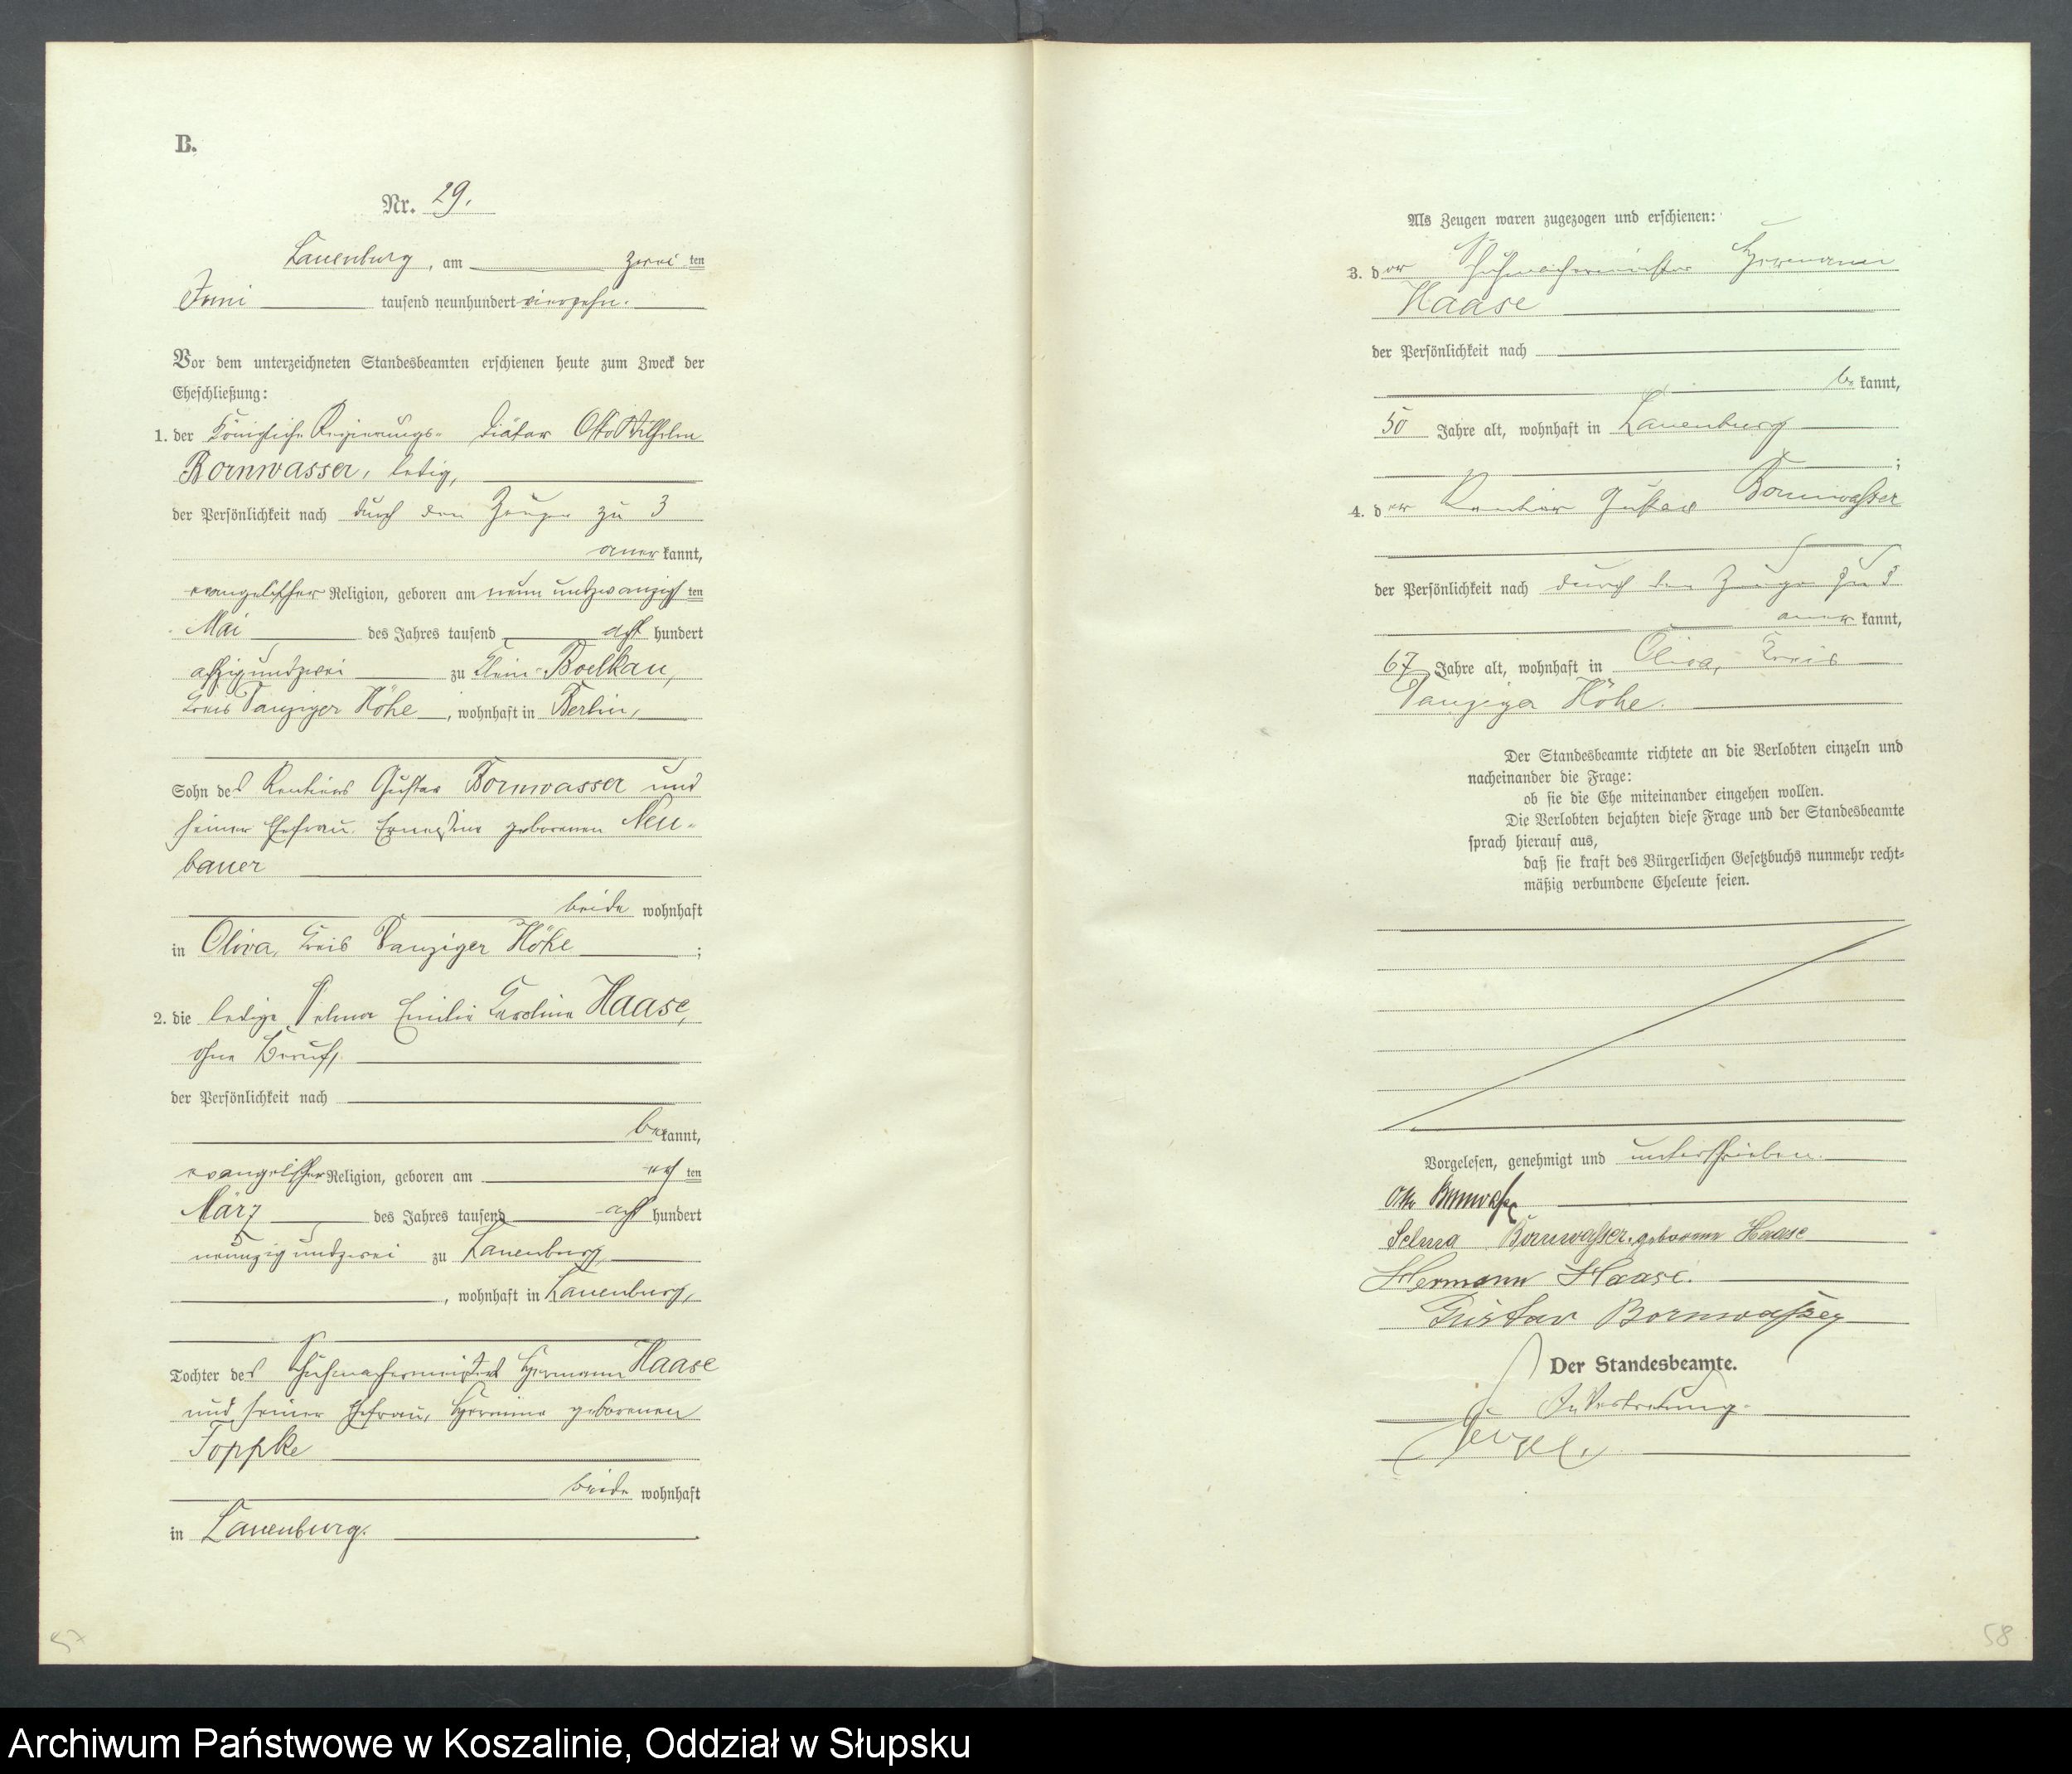 B.
Nr. 29.
Lauenburg, am zwei ten
Juni tausend neunhundert vierzehn.
Vor dem unterzeichneten Standesbeamten erschienen heute zum Zweck der
Eheschließung:
1. der Königliche Regierungs- Diätar Otto Wilhelm
Bornwasser, ledig,
der Persönlichkeit nach durch den Zeugen zu 3
aner kannt,
evangelischer Religion, geboren am neun undzwanzig ten
Mai des Jahres tausend acht hundert
achzig undzwei zu Klein-Boelkau,
Kreis Danziger Höhe, wohnhaft in Berlin,
Sohn des Rentiers Gustav Bornwasser und
seiner Ehefrau Ernestine geborenen Neu-
bauer
beide wohnhaft
in Oliva, Kreis Danziger Höhe ;
2. die ledige Selma Emilie Karoline Haase,
ohne Beruf,
der Persönlichkeit nach
be kannt,
evangelischer Religion, geboren am ten
März des Jahres tausend acht hundert
neunzig undzwei zu Lauenburg
, wohnhaft in Lauenburg,
Tochter des Schuhmachermeisters Hermann Haase
und seiner Ehefrau, Hermine geborenen
Toppke
beide wohnhaft
in Lauenburg.
57
Als Zeugen waren zugezogen und erschienen:
3. der Schuhmachermeister Hermann
Haase
der Persönlichkeit nach
be kannt,
50 Jahre alt, wohnhaft in Lauenburg
;
4. der Rentier Gustav Bornwasser
der Persönlichkeit nach durch den Zeugen zu 3
aner kannt,
67 Jahre alt, wohnhaft in Oliva, Kreis
Danziger Höhe.
Der Standesbeamte richtete an die Verlobten einzeln und
nacheinander die Frage:
ob sie die Ehe miteinander eingehen wollen.
Die Verlobten bejahten diese Frage und der Standesbeamte
sprach hierauf aus,
daß sie kraft des Bürgerlichen Gesetzbuchs nunmehr recht-
mäßig verbundene Eheleute seien.
Vorgelesen, genehmigt und unterschrieben.
Otto Bornwasser
Selma Bornwasser, geborene Haase
Hermann Haase.
Gustav Bornwasser
Der Standesbeamte.
In Vertretung.
58
Archiwum Państwowe w Koszalinie, Oddział w Słupsku